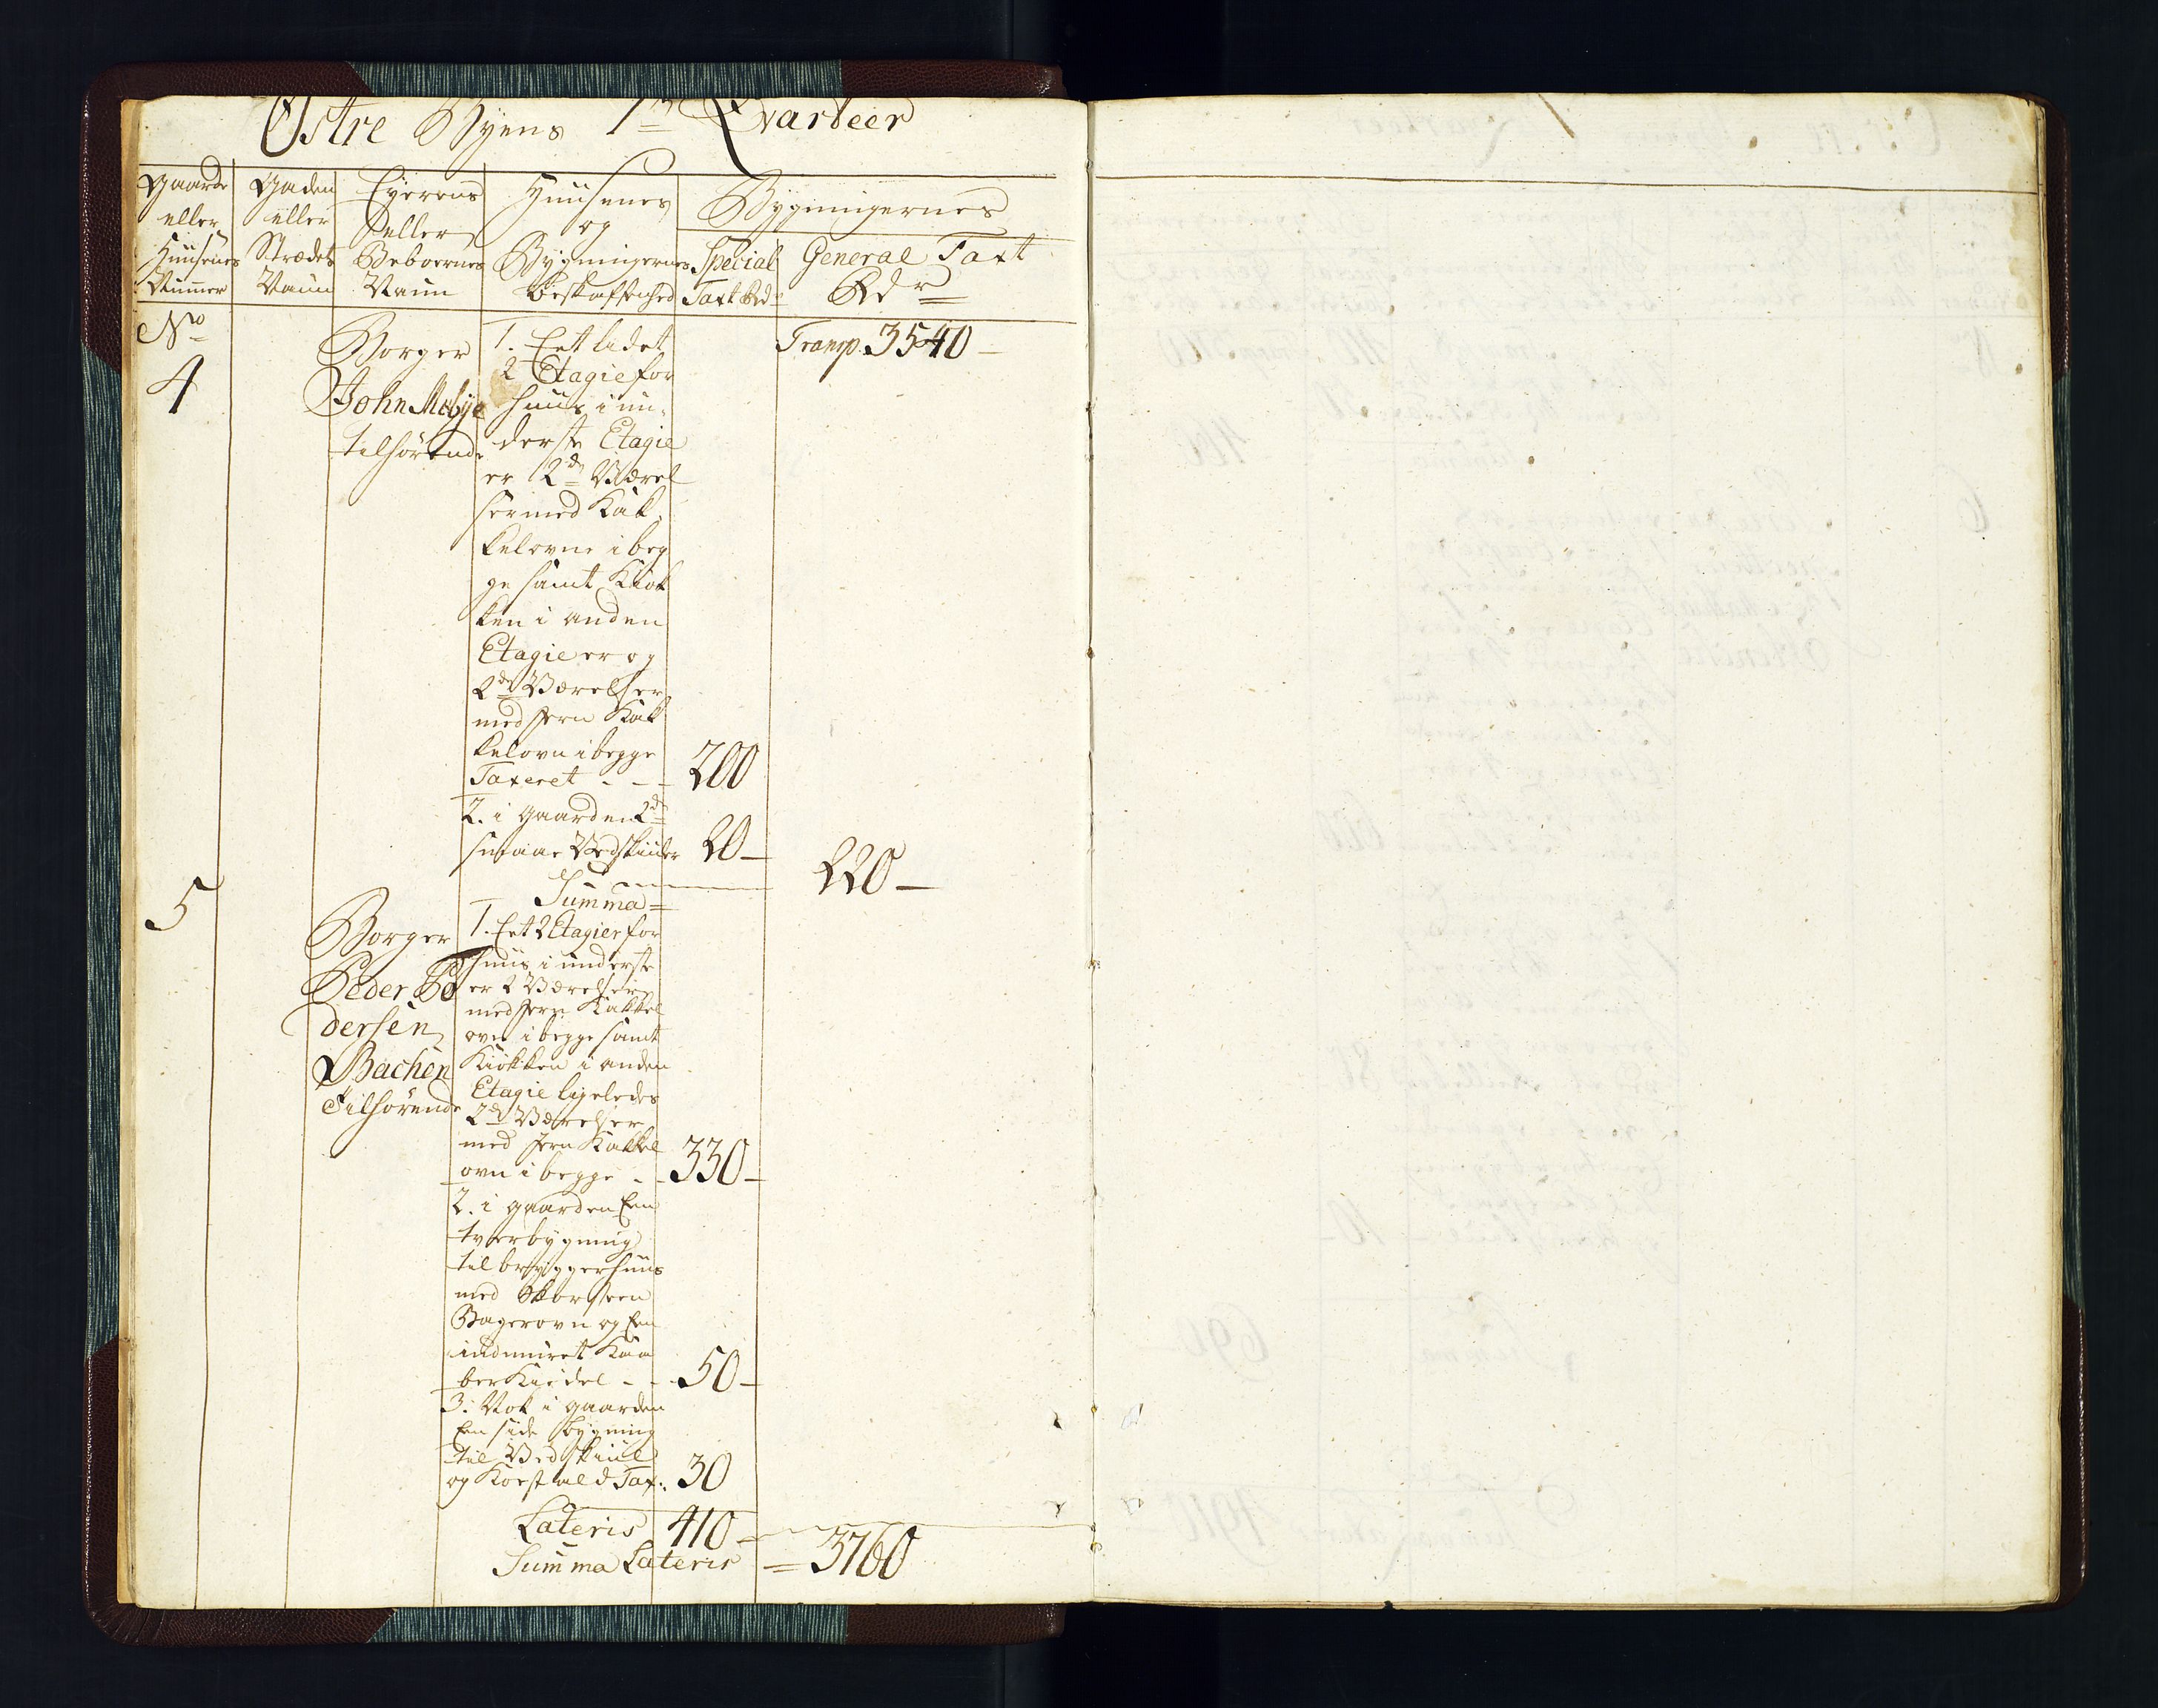 Østre Byens 1ste Qvarteer
Gaarde
eller
Huusenes
Nummer
Gaden
eller
Strædets
Navn
Ejerens
eller
Beboernes
Navn
Huusenes
og
Bygningernes
Beskaffenhed
Bygningernes
Special
Taxt Rdr
General Taxt
Rdr
No
4
Borger
John Mebye
tilhørende
Transp. 3540 -
1. Eet lidet
2 Etagie for
huus i un-
derste Etagie
er 2de Værel
ser med Kak-
kelovne i beg
ge samt Kiøk
ken i anden
Etagie er og
2de Værelser
med Jern Kak
kelovn i begge
Taxeret - - - 200
2. i Gaarden 2de
smaae Vedskiuler 20 -
Summa = 220 -
5
Borger
Peder Pe
dersen
Bachen
Tilhørende
1. Eet 2 Etagier for
huus i underste
er 2 Værelser
med Jern Kakkel
ovn i begge samt
Kiøkken i anden
Etagie ligeledes
2de Værelser
med Jern Kakkel
ovn i begge - - 330 -
2. i Gaarden Een
tverbygning
til bryggerhuus
med Skorsteen
Bagerovn og Een
indmuret Kaa
ber Kiedel - - 50 -
3. Nok i Gaarden
Een side bygning
til Vedskiul
og Koestald Tax: 30
Lateris 410 -
Summa Lateris = 3760